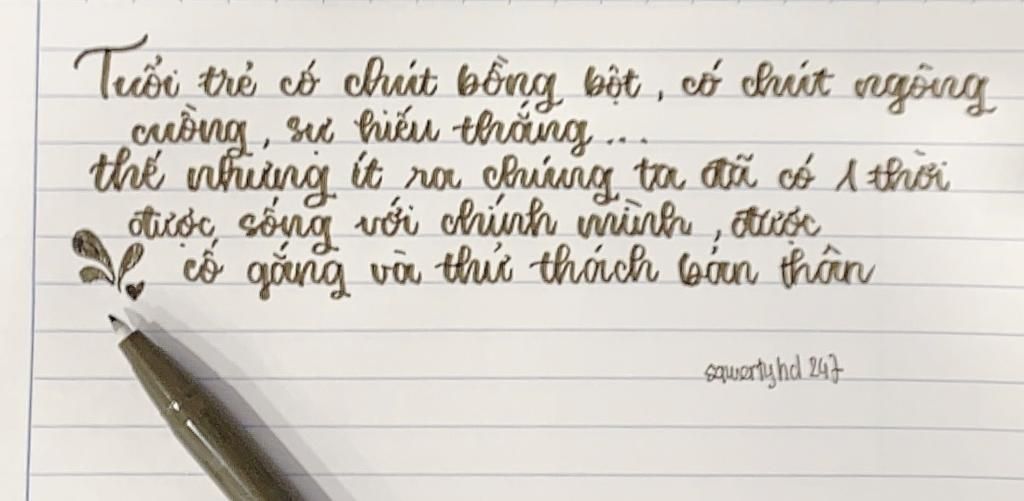 Tuổi trẻ có chút bồng bột, có chút ngông
cuồng, sự hiếu thắng...
thế nhưng ít ra chúng ta đã có 1 thời
được sống với chính mình, được
cố gắng và thử thách bản thân
sqwertyhd 247